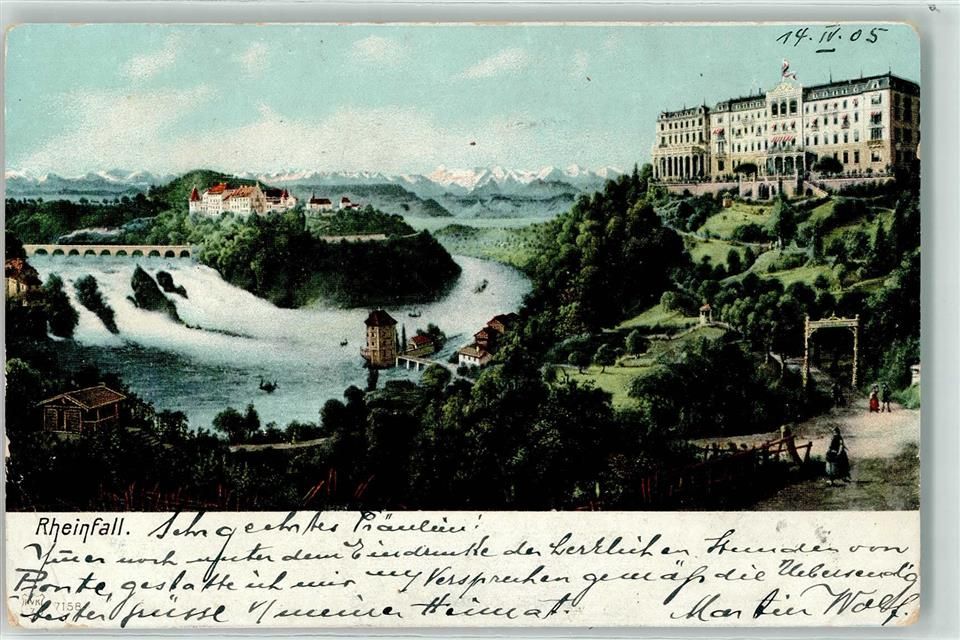 14. IV. 05
Rheinfall. Sehr geehrtes Fräulein!
Immer noch unter dem Eindrucke der herzlichen Stunden von
gestatte ich mir Versprechen gemäß die Uebersendg
bester Grüsse v/ meiner Heimat. Martin Wolf.
7158